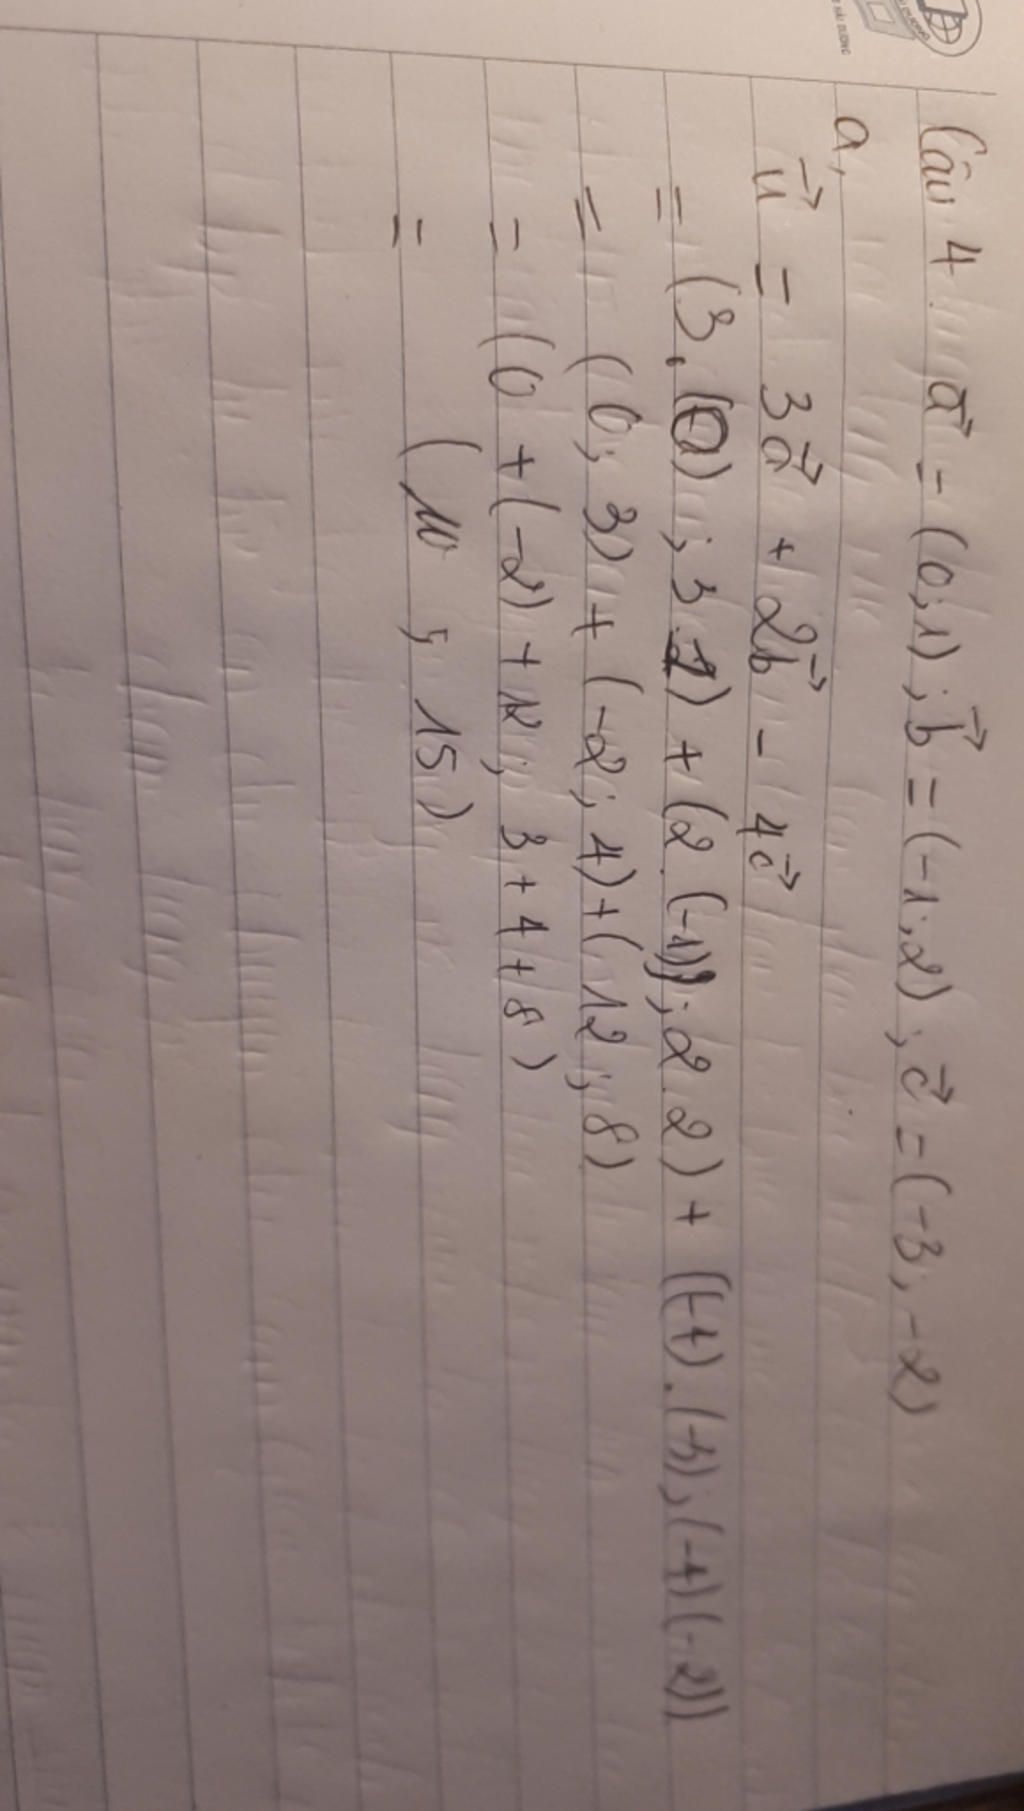 Câu 4. a⃗ = (0;1); b⃗ = (-1;2); c⃗ = (-3;-2)
a,
u⃗ = 3a⃗ + 2b⃗ - 4c⃗
= (3.(0); 3.1) + (2.(-1); 2.2) + ((-4).(-3); (-4)(-2))
= (0; 3) + (-2; 4) + (12; 8)
= (0 + (-2) + 12; 3 + 4 + 8)
= (10; 15)